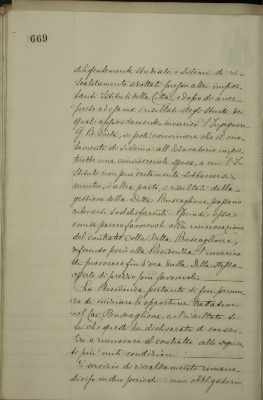 669
diligentemente studiato i sistemi di ri-
scaldamento adottati presso altri impor-
tanti Istituti della Città, e dopo di aver
preso ad esame i risultati degli studi dei
quali appositamente incaricò l'Ingegnere
G. B. Porta, si potè convincere che il mu-
tamento di sistema all'Educatorio impor-
terebbe una considerevole spesa, a cui l'I-
stituto non può certamente sobbarcarsi,
mentre, d'altra parte, i risultati della
gestione della Ditta Buscaglione, possono
ritenersi soddisfacenti. Quindi essa
emise parere favorevole alla rinnovazione
del contratto colla Ditta Buscaglione,
riferendo però alla Presidenza l'incarico
di provocare fin d'ora dalla Ditta stessa
offerte di prezzo più favorevoli.
La Presidenza pertanto si fece premu-
ra di iniziare le opportune trattative
col Sig. Buscaglione, ed il risultato si
fu che questi ha dichiarato di consen-
tire a rinnovare il contratto alle seguen-
ti più miti condizioni.
Il servizio di riscaldamento rimane
diviso in due periodi: uno obbligatorio